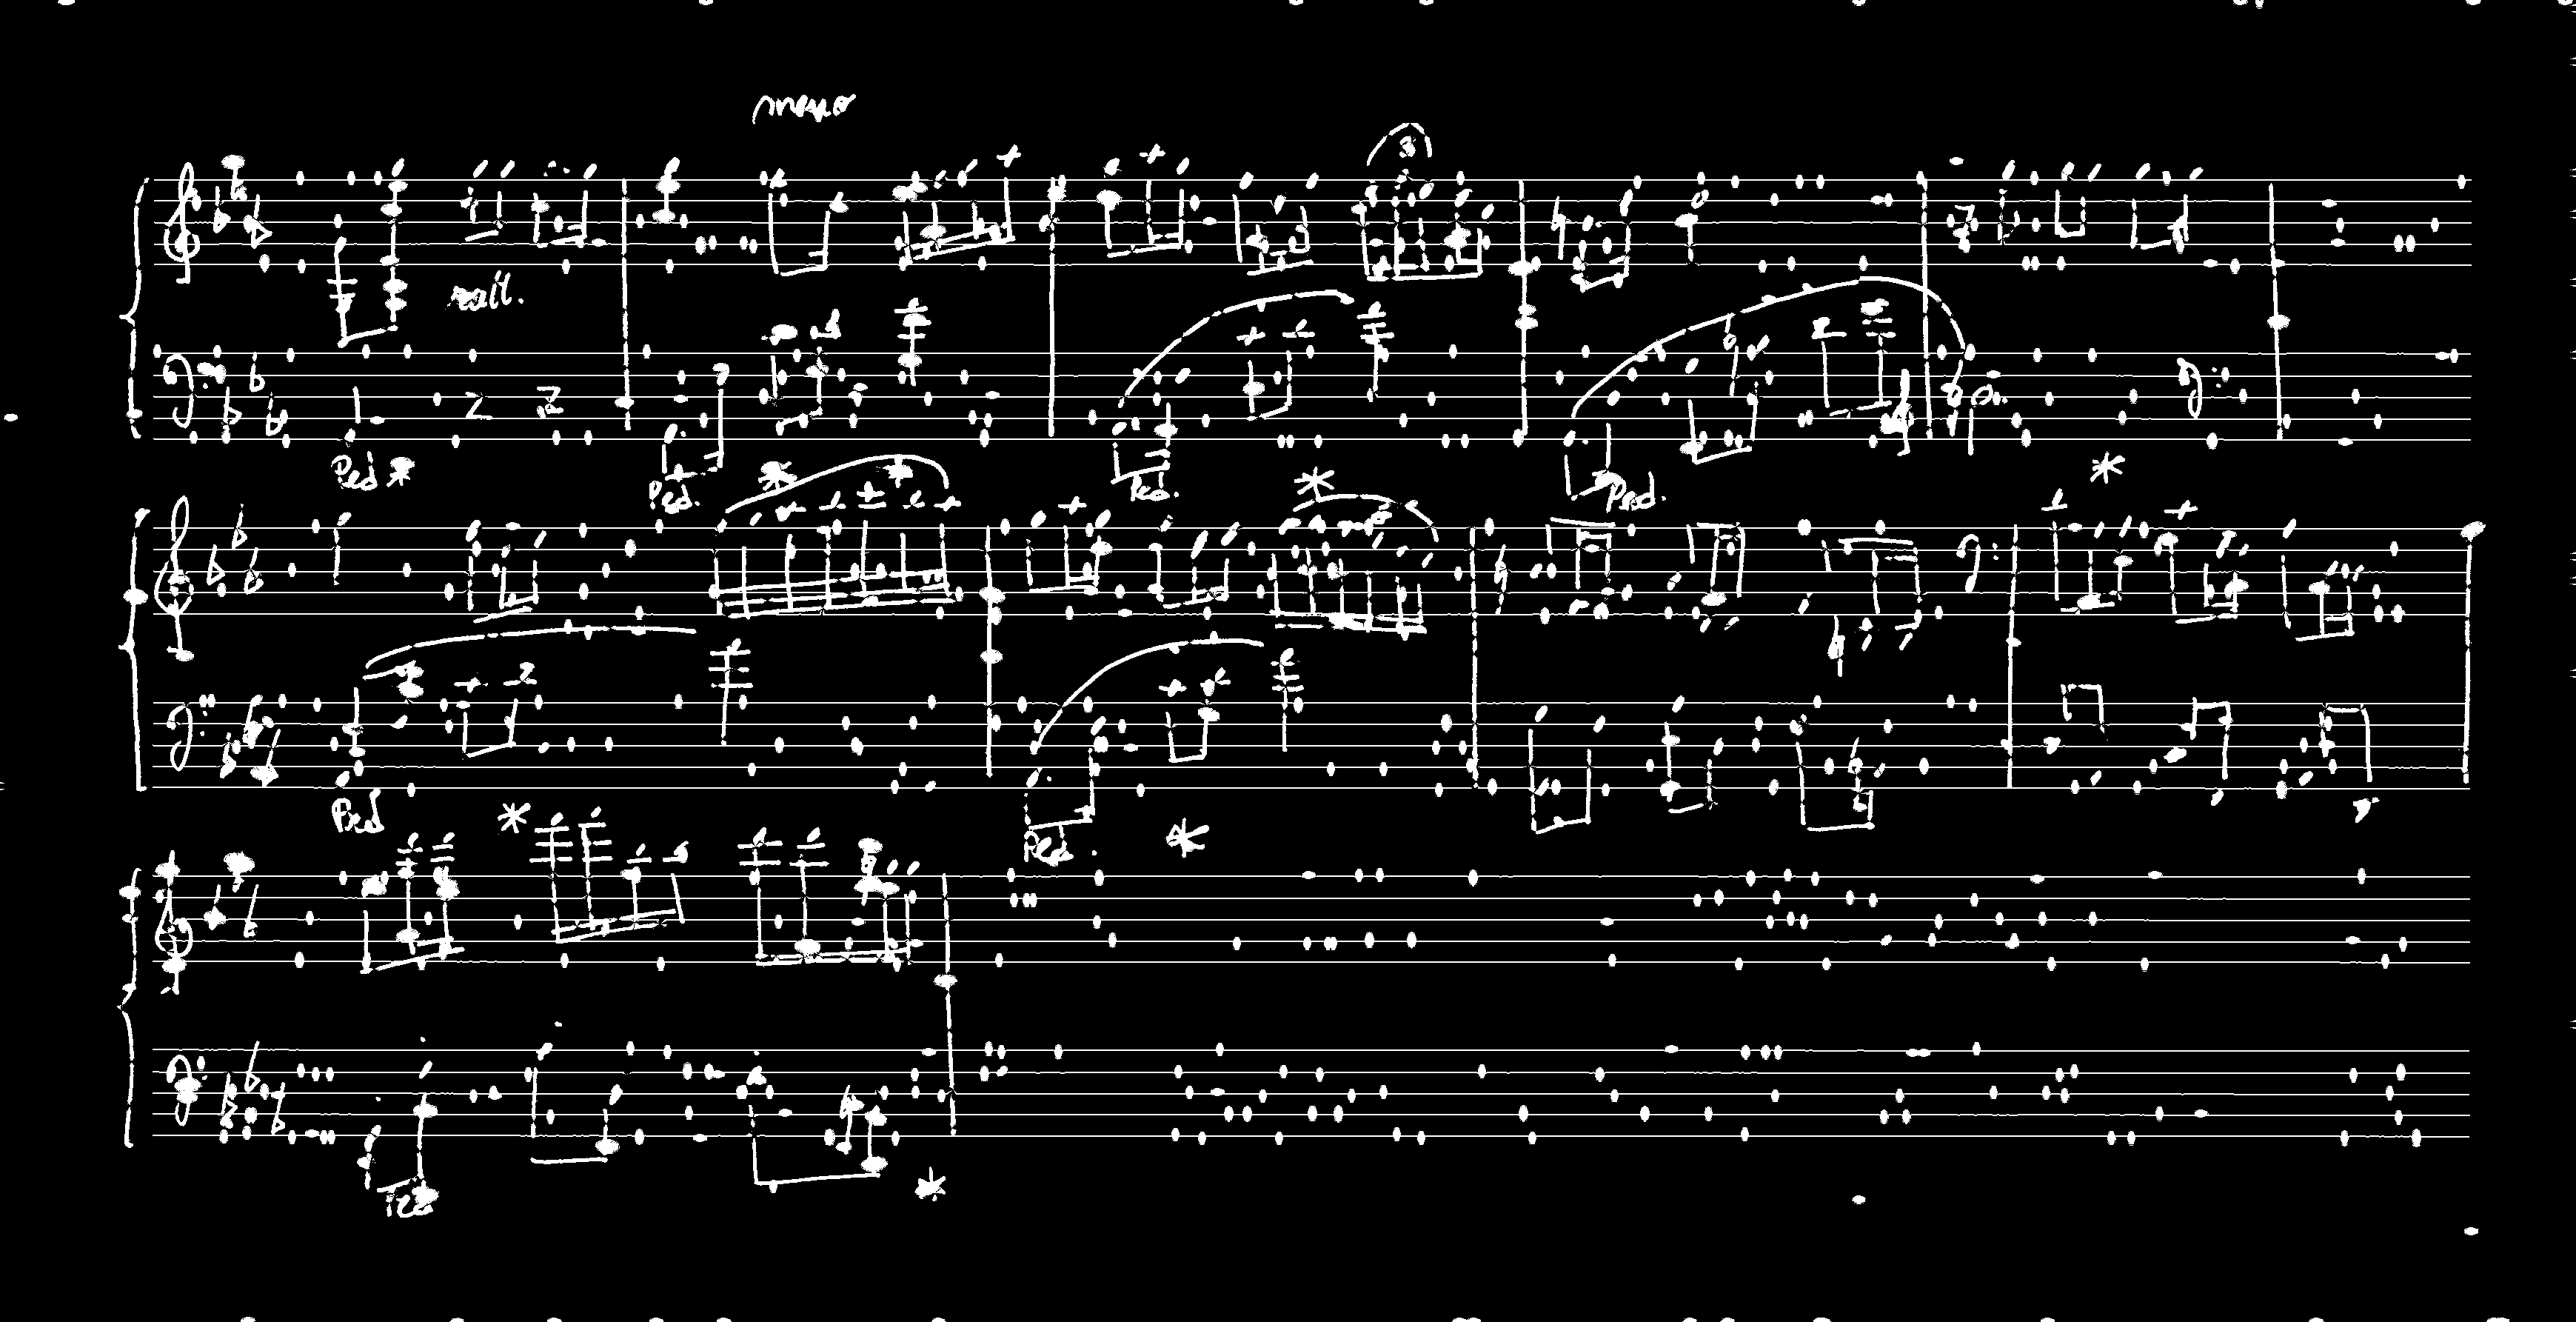 meno
3
rall.
Ped *
Ped. * Ped. * Ped. *
Ped * Ped. *
Ped *